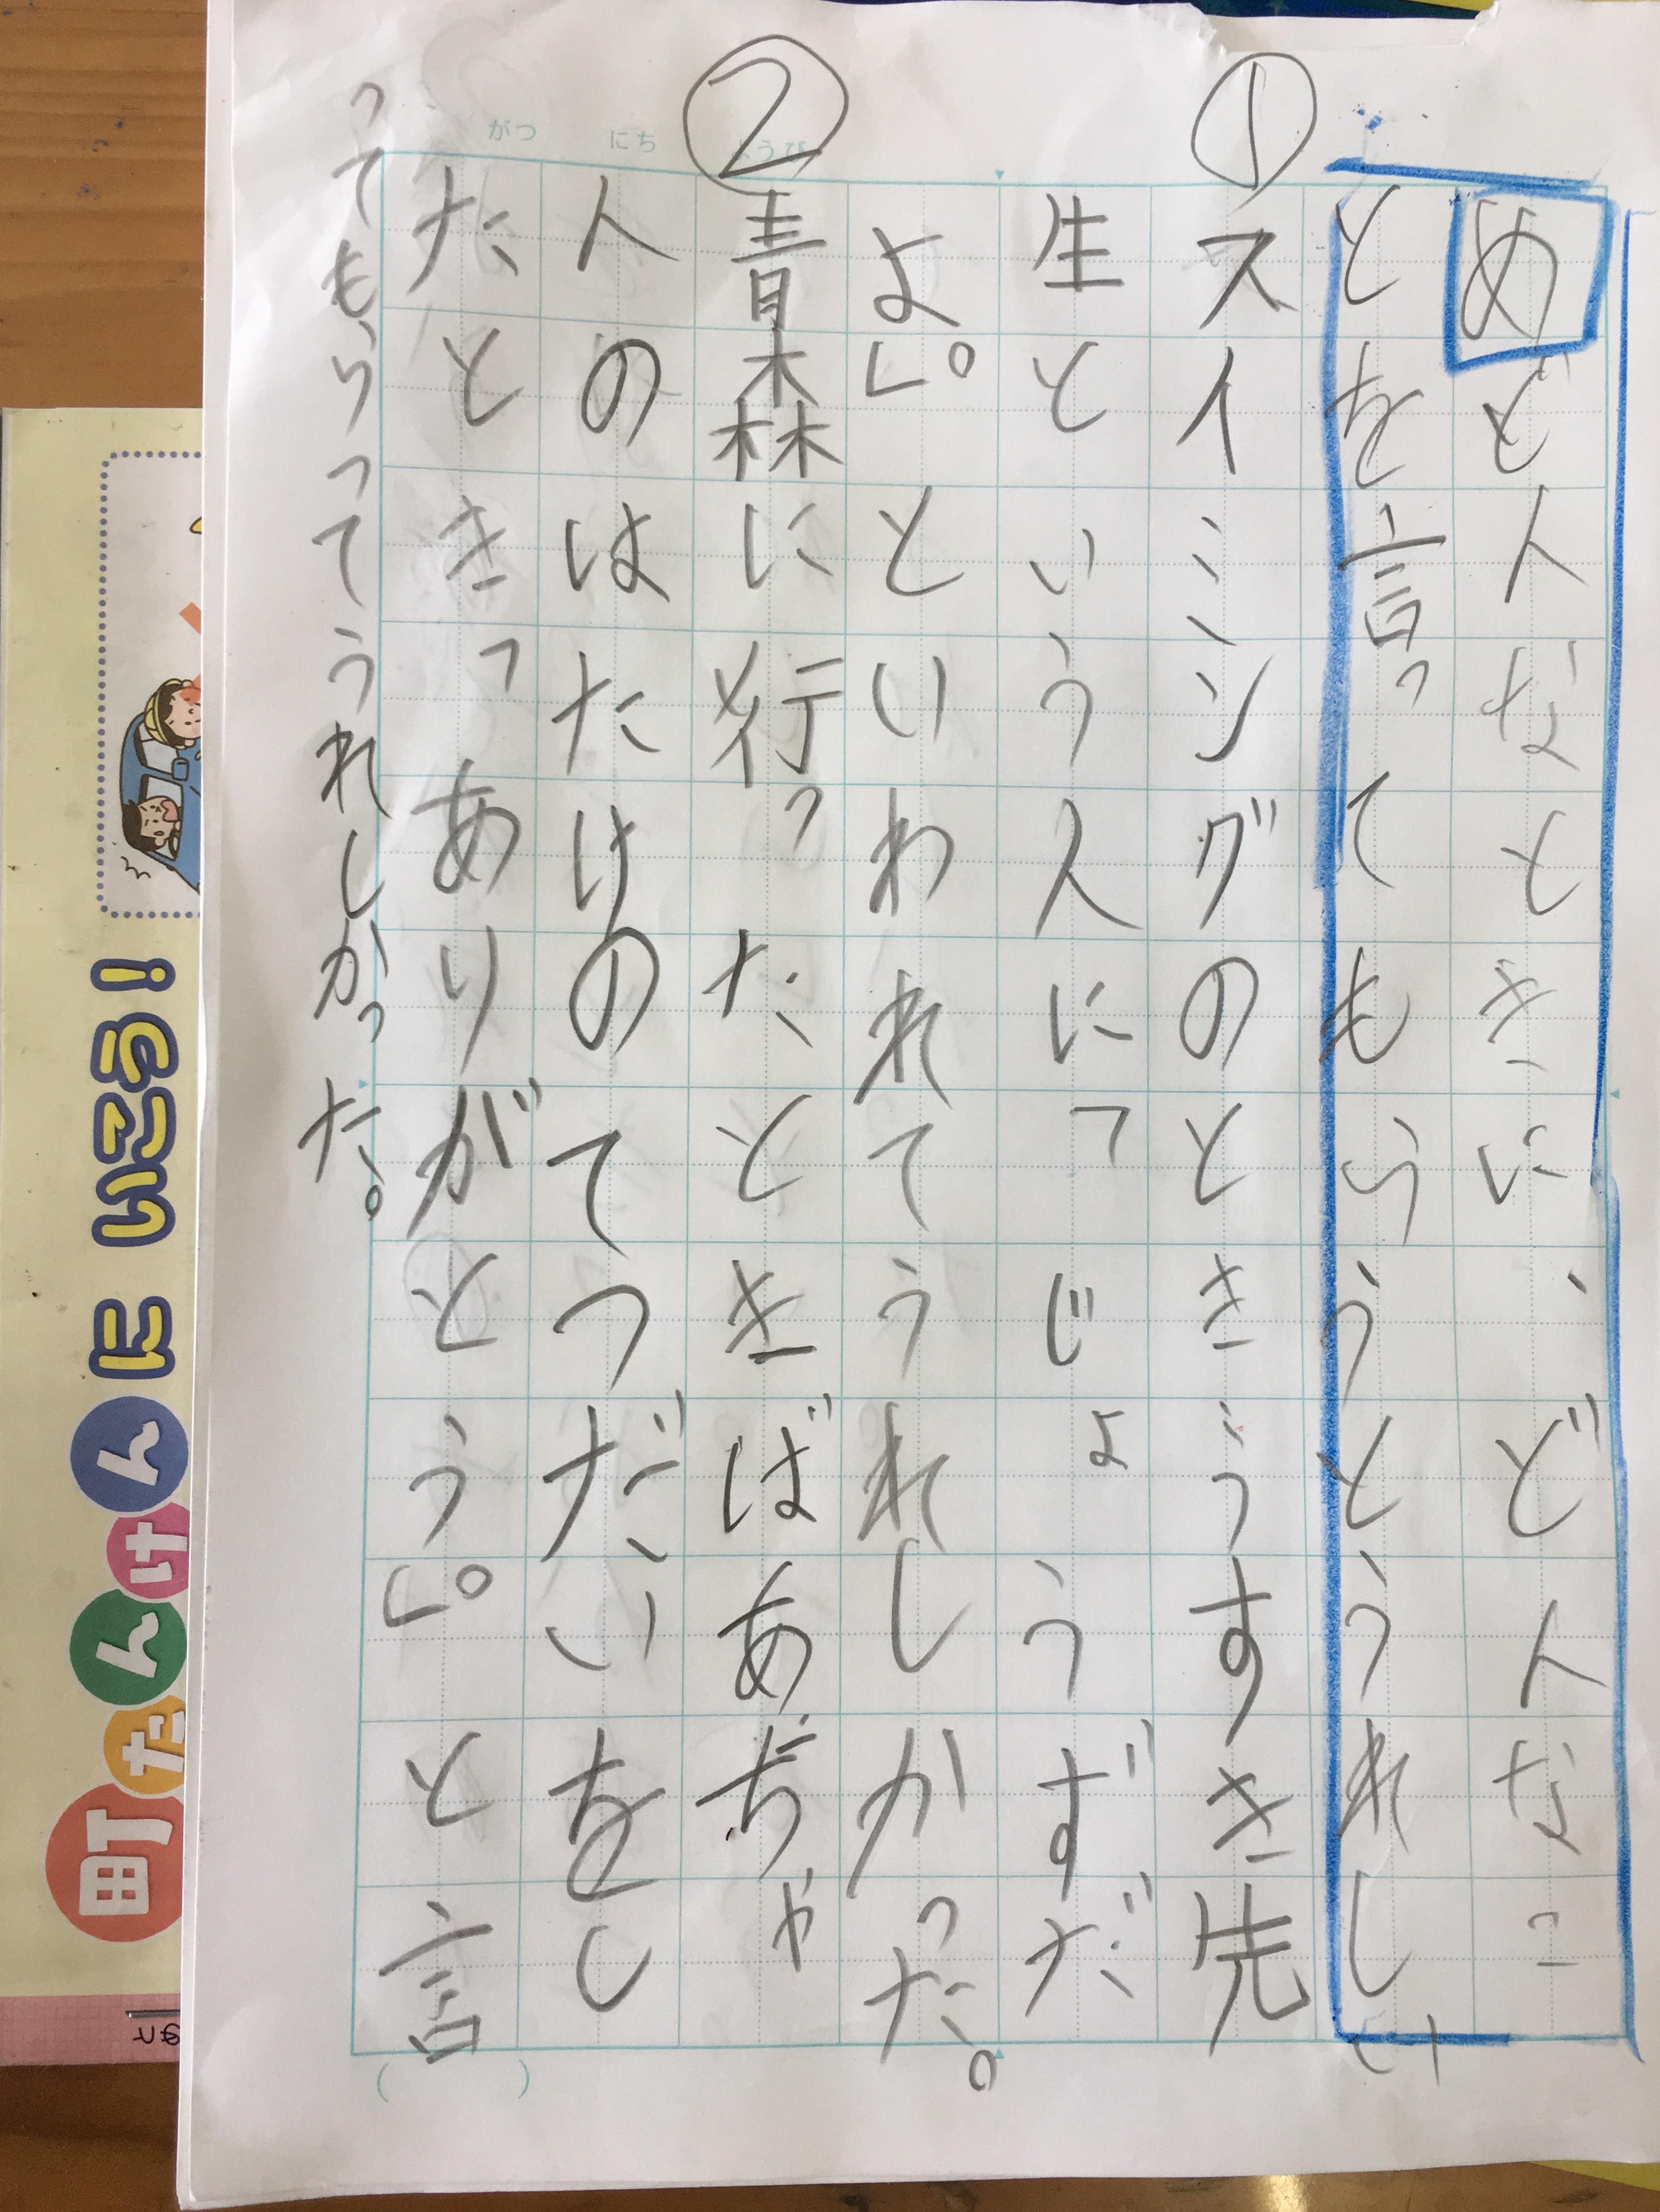 めどんなときに、どんなこ
とを言ってもらうとうれしい
①スイミングのときうすき先
生という人に「じょうずだ
よ。」といわれてうれしかった。
②青森に行ったときばあぢゃ
んのはたけのてつだいをし
たとき「ありがとう。」と言
ってもらってうれしかった。
がつ にち ようび
町たんけんにいこう!